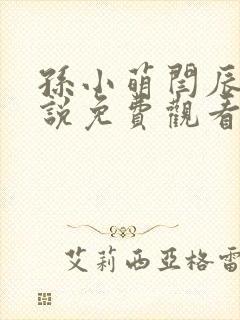 孫小萌閆辰
說免費觀看
艾莉西亞格雷